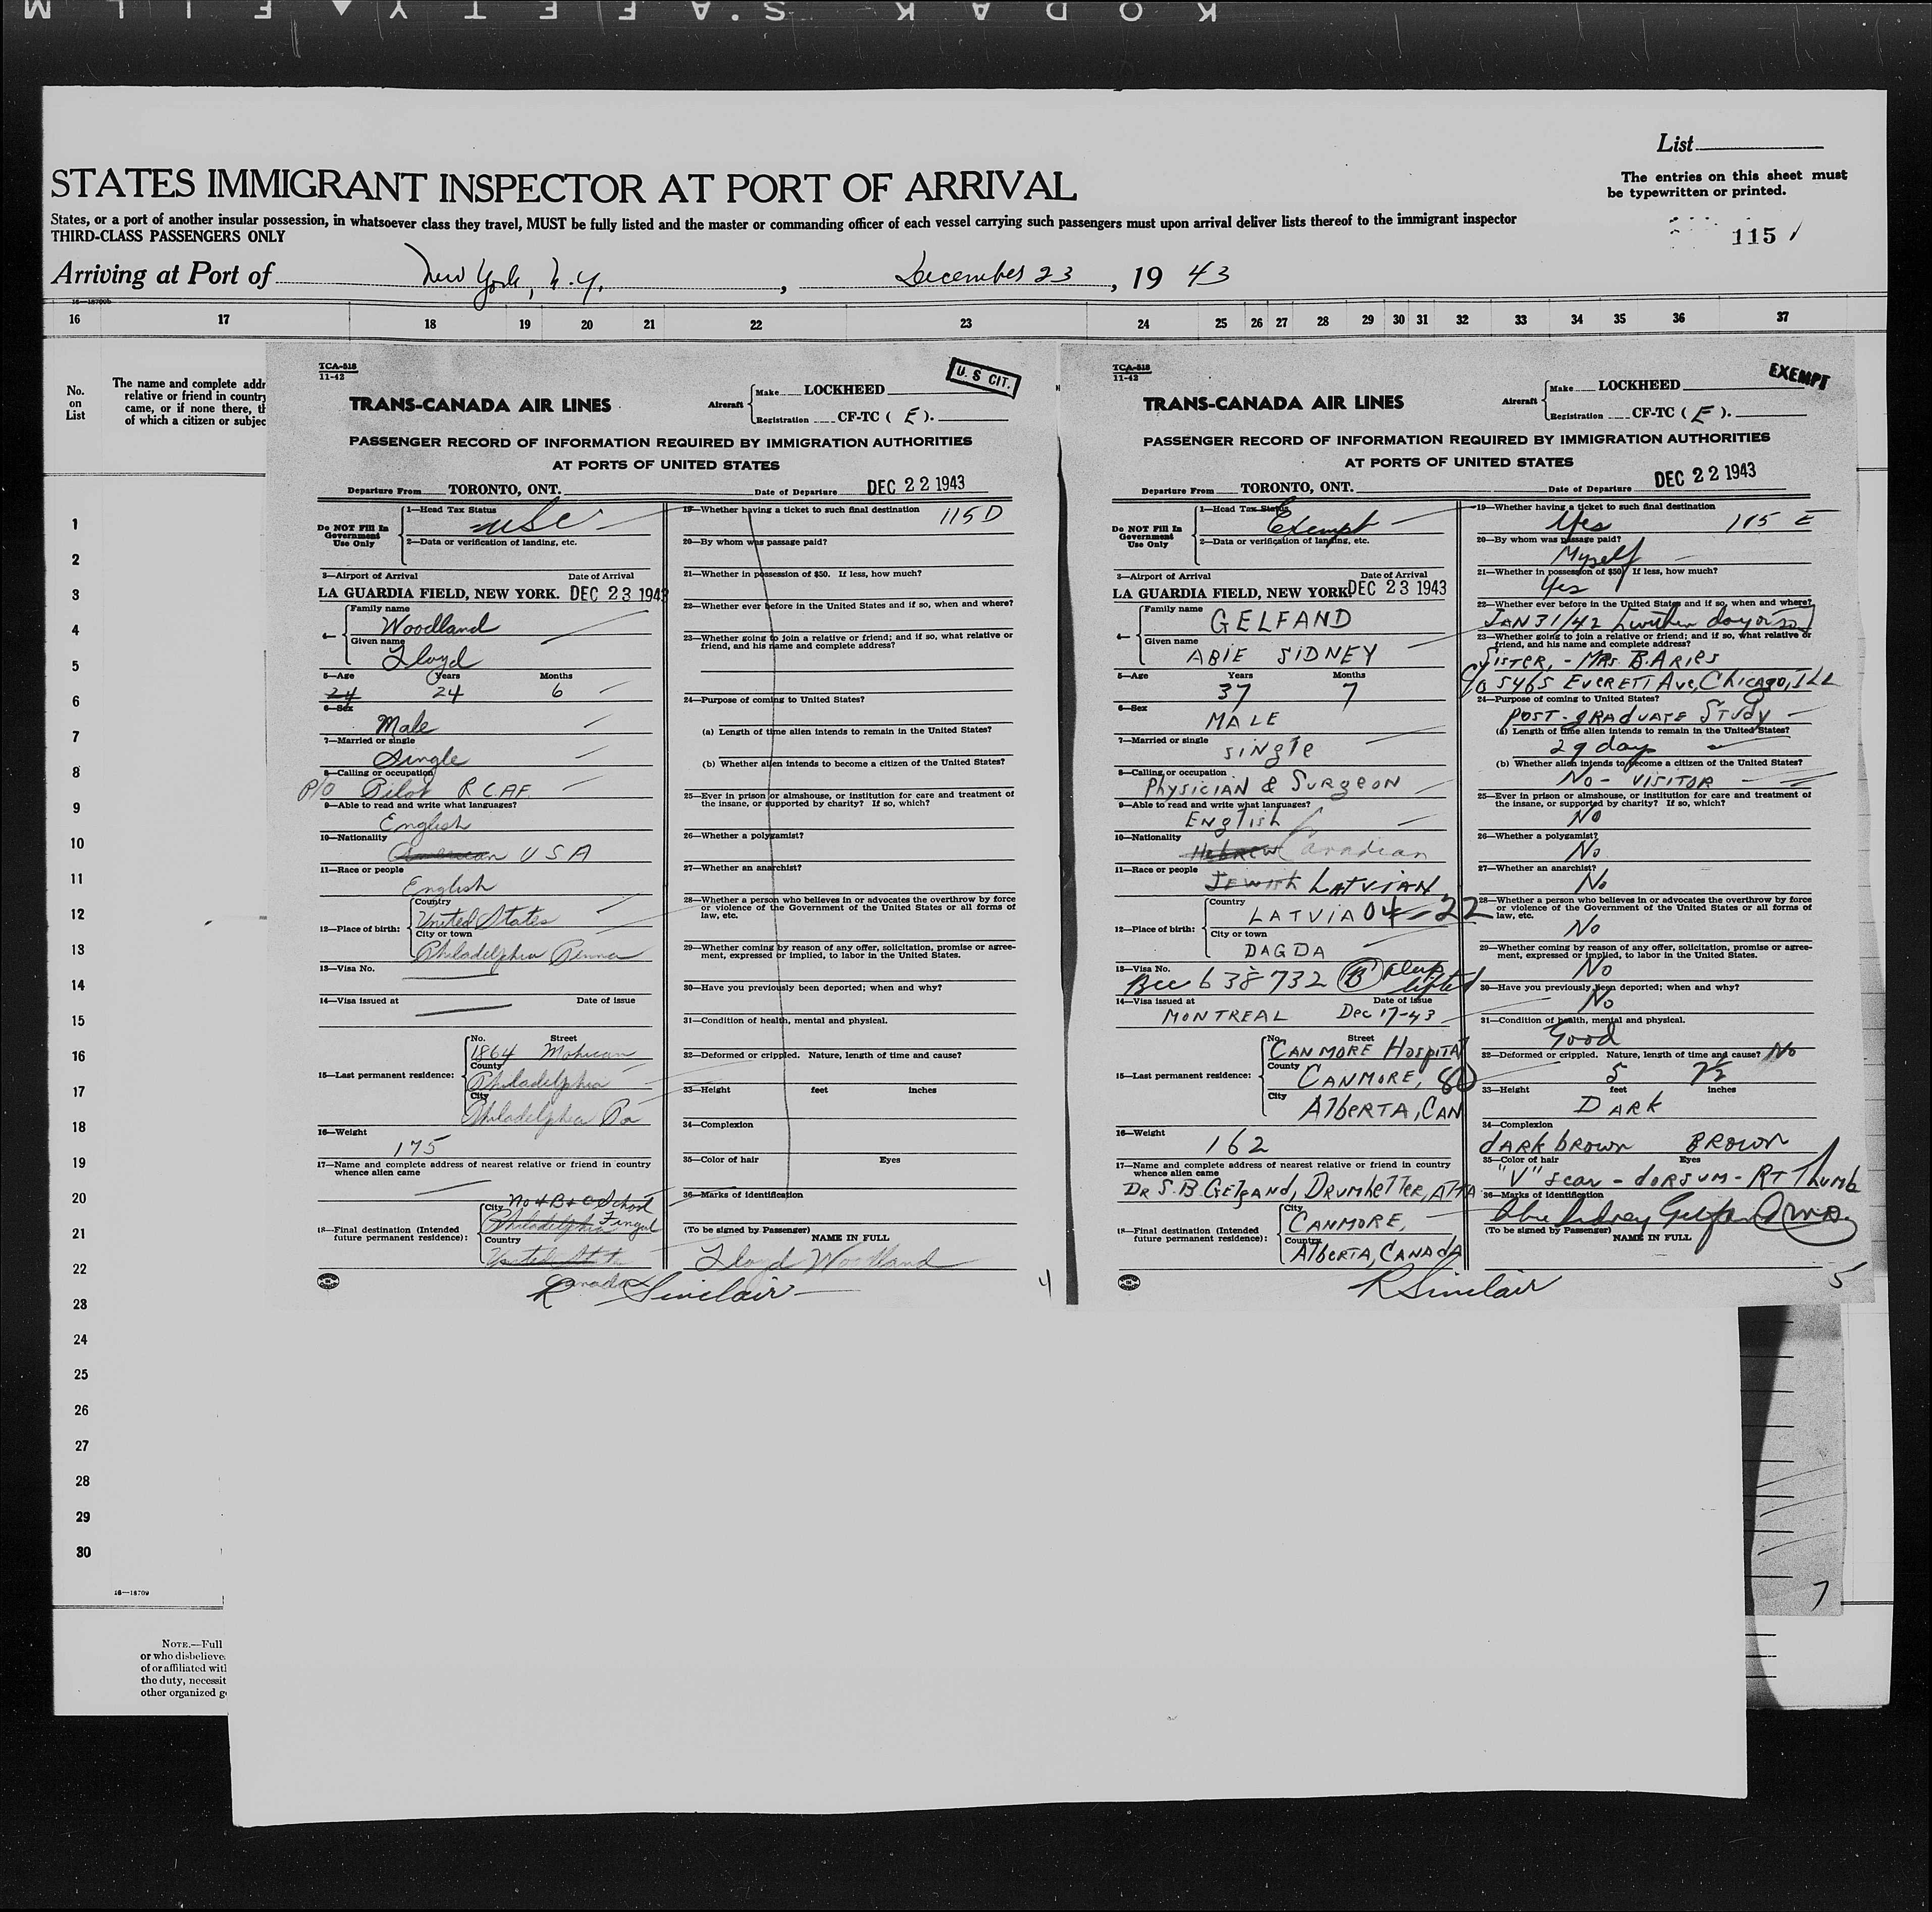 KODAK SAFETY FILM
List
STATES IMMIGRANT INSPECTOR AT PORT OF ARRIVAL
The entries on this sheet must
be typewritten or printed.
States, or a port of another insular possession, in whatsoever class they travel, MUST be fully listed and the master or commanding officer of each vessel carrying such passengers must upon arrival deliver lists thereof to the immigrant inspector
THIRD-CLASS PASSENGERS ONLY
115
Arriving at Port of New York, N.Y., December 23, 1943
16—18709b
16 17 18 19 20 21 22 23 24 25 26 27 28 29 30 31 32 33 34 35 36 37
No.
on
List
The name and complete addr
relative or friend in country
came, or if none there, th
of which a citizen or subjec
1
2
3
4
5
6
7
8
9
10
11
12
13
14
15
16
17
18
19
20
21
22
23
24
25
26
27
28
29
30
16—18709
NOTE.—Full
or who disbelieve
of or affiliated with
the duty, necessit
other organized g
TCA-518
11-42
U. S CIT.
TRANS-CANADA AIR LINES
Aircraft
Make LOCKHEED
Registration CF-TC ( E ).
PASSENGER RECORD OF INFORMATION REQUIRED BY IMMIGRATION AUTHORITIES
AT PORTS OF UNITED STATES
Departure From TORONTO, ONT. Date of Departure DEC 22 1943
Do NOT Fill In
Government
Use Only
1—Head Tax Status
USC
2—Data or verification of landing, etc.
3—Airport of Arrival Date of Arrival
LA GUARDIA FIELD, NEW YORK. DEC 23 1943
4—
Family name
Woodland
Given name
Lloyd
5—Age Years Months
24 24 6
6—Sex
Male
7—Married or single
Single
8—Calling or occupation
P/O Pilot R.C.A.F.
9—Able to read and write what languages?
English
10—Nationality
American USA
11—Race or people
English
12—Place of birth:
Country
United States
City or town
Philadelphia Penna
13—Visa No.
14—Visa issued at Date of issue
15—Last permanent residence:
No. Street
1864 Mohican
County
Philadelphia
City
Philadelphia Pa
16—Weight
175
17—Name and complete address of nearest relative or friend in country
whence alien came
18—Final destination (Intended
future permanent residence):
City No 4 B & G School
Philadelphia Fingal
Country
United States
Canada
19—Whether having a ticket to such final destination
115 D
20—By whom was passage paid?
21—Whether in possession of $50. If less, how much?
22—Whether ever before in the United States and if so, when and where?
23—Whether going to join a relative or friend; and if so, what relative or
friend, and his name and complete address?
24—Purpose of coming to United States?
(a) Length of time alien intends to remain in the United States?
(b) Whether alien intends to become a citizen of the United States?
25—Ever in prison or almshouse, or institution for care and treatment of
the insane, or supported by charity? If so, which?
26—Whether a polygamist?
27—Whether an anarchist?
28—Whether a person who believes in or advocates the overthrow by force
or violence of the Government of the United States or all forms of
law, etc.
29—Whether coming by reason of any offer, solicitation, promise or agree-
ment, expressed or implied, to labor in the United States.
30—Have you previously been deported; when and why?
31—Condition of health, mental and physical.
32—Deformed or crippled. Nature, length of time and cause?
33—Height feet inches
34—Complexion
35—Color of hair Eyes
36—Marks of identification
(To be signed by Passenger)
NAME IN FULL
Lloyd Woodland
R Sinclair
4
TCA-518
11-42
EXEMPT
TRANS-CANADA AIR LINES
Aircraft
Make LOCKHEED
Registration CF-TC ( E ).
PASSENGER RECORD OF INFORMATION REQUIRED BY IMMIGRATION AUTHORITIES
AT PORTS OF UNITED STATES
Departure From TORONTO, ONT. Date of Departure DEC 22 1943
Do NOT Fill In
Government
Use Only
1—Head Tax Status
Exempt
2—Data or verification of landing, etc.
3—Airport of Arrival Date of Arrival
LA GUARDIA FIELD, NEW YORK DEC 23 1943
4—
Family name
GELFAND
Given name
ABIE SIDNEY
5—Age Years Months
37 7
6—Sex
MALE
7—Married or single
SINGLE
8—Calling or occupation
PHYSICIAN & SURGEON
9—Able to read and write what languages?
ENGLISH
10—Nationality
Hebrew Canadian
11—Race or people
JEWISH LATVIAN
12—Place of birth:
Country
LATVIA 04-22
City or town
DAGDA
13—Visa No.
Bcc 638732 B
14—Visa issued at Date of issue
MONTREAL Dec 17-43
15—Last permanent residence:
No. Street
CANMORE HOSPITAL
County
CANMORE, 80
City
ALBERTA, CAN
16—Weight
162
17—Name and complete address of nearest relative or friend in country
whence alien came
DR S.B. GELFAND, DRUMHELLER, ALTA
18—Final destination (Intended
future permanent residence):
City
CANMORE,
Country
ALBERTA, CANADA
19—Whether having a ticket to such final destination
Yes 115 E
20—By whom was passage paid?
Myself
21—Whether in possession of $50 If less, how much?
Yes
22—Whether ever before in the United States and if so, when and where?
JAN 31/42 (within day or so)
23—Whether going to join a relative or friend; and if so, what relative or
friend, and his name and complete address?
SISTER, - MRS. B. ARIES
c/o 5465 EVERETT AVE, CHICAGO, ILL
24—Purpose of coming to United States?
POST-GRADUATE STUDY
(a) Length of time alien intends to remain in the United States?
29 days
(b) Whether alien intends to become a citizen of the United States?
NO - VISITOR
25—Ever in prison or almshouse, or institution for care and treatment of
the insane, or supported by charity? If so, which?
No
26—Whether a polygamist?
No
27—Whether an anarchist?
No
28—Whether a person who believes in or advocates the overthrow by force
or violence of the Government of the United States or all forms of
law, etc.
No
29—Whether coming by reason of any offer, solicitation, promise or agree-
ment, expressed or implied, to labor in the United States.
No
30—Have you previously been deported; when and why?
No
31—Condition of health, mental and physical.
Good
32—Deformed or crippled. Nature, length of time and cause? No
5 7½
33—Height feet inches
DARK
34—Complexion
DARK BROWN BROWN
35—Color of hair Eyes
"V" scar - DORSUM - RT Thumb
36—Marks of identification
Abie Sidney Gelfand
(To be signed by Passenger)
NAME IN FULL
R Sinclair
5
7